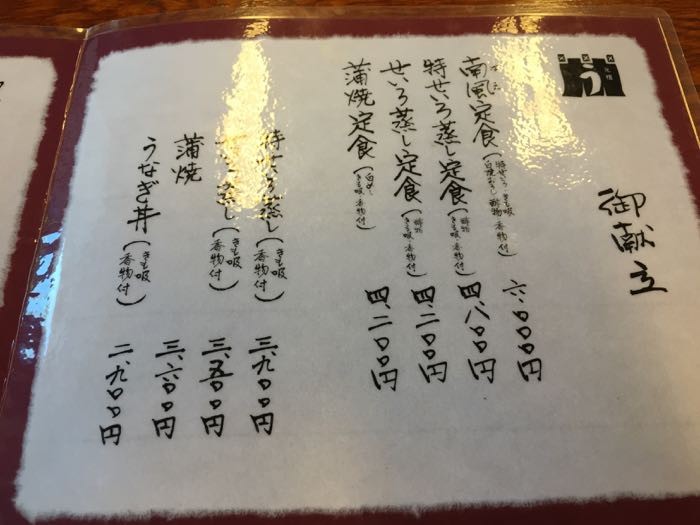 う
御献立
南風定食(特せいろ・きも吸 白焼おろし 酢物 香物付) 六、〇〇〇円
特せいろ蒸し定食(酢物 きも吸 香物付) 四、八〇〇円
せいろ蒸し定食(酢物 きも吸 香物付) 四、二〇〇円
蒲焼定食(白めし きも吸 香物付) 四、二〇〇円
特せいろ蒸し(きも吸 香物付) 三、九〇〇円
せいろ蒸し(きも吸 香物付) 三、五〇〇円
蒲焼 三、六〇〇円
うなぎ丼(きも吸 香物付) 二、九〇〇円